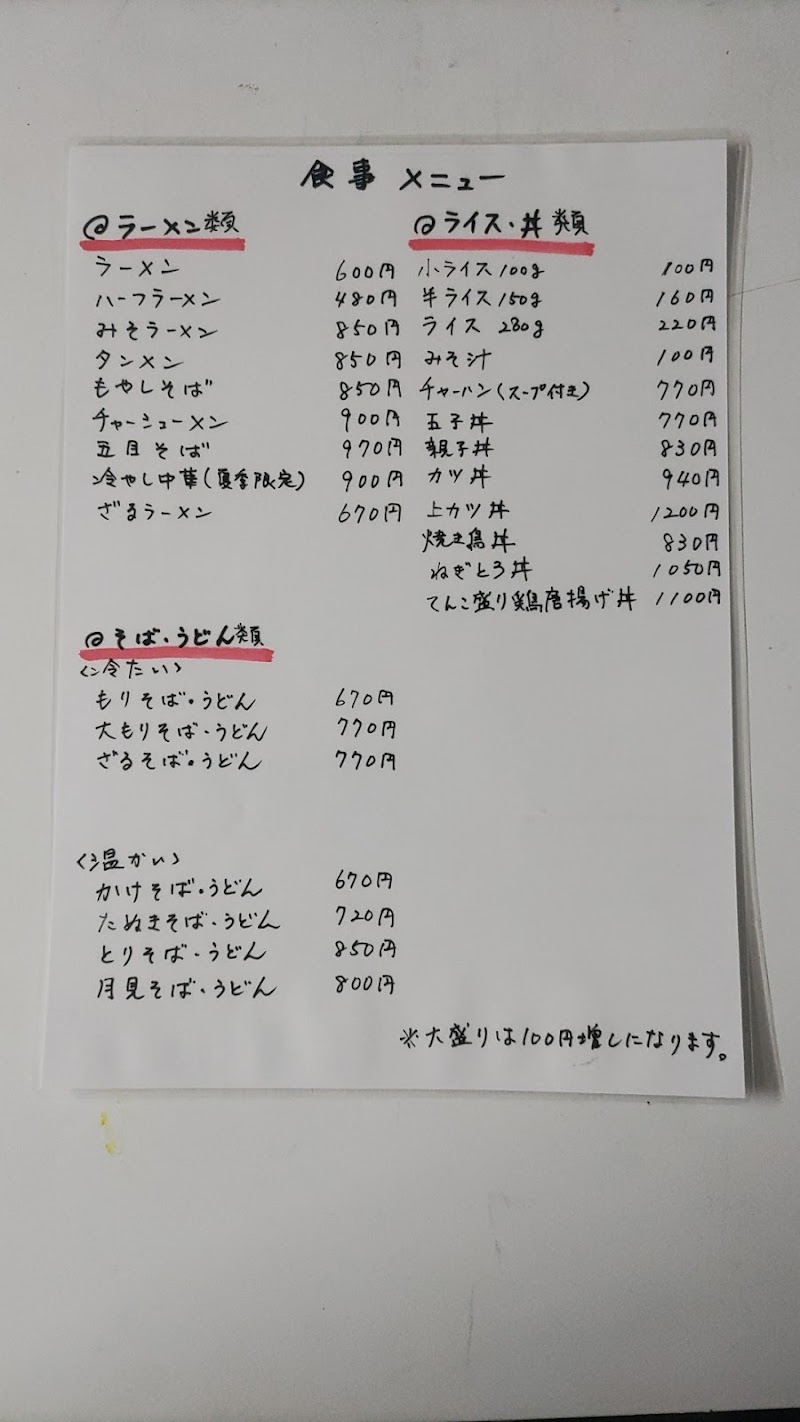 食事 メニュー
@ラーメン類
ラーメン 600円
ハーフラーメン 480円
みそラーメン 850円
タンメン 850円
もやしそば 850円
チャーシューメン 900円
五目そば 970円
冷やし中華(夏季限定) 900円
ざるラーメン 670円
@ライス・丼類
小ライス100g 100円
半ライス150g 160円
ライス 280g 220円
みそ汁 100円
チャーハン(スープ付き) 770円
玉子丼 770円
親子丼 830円
カツ丼 940円
上カツ丼 1200円
焼き鳥丼 830円
ねぎとろ丼 1050円
てんこ盛り鶏唐揚げ丼 1100円
@そば・うどん類
<冷たい>
もりそば・うどん 670円
大もりそば・うどん 770円
ざるそば・うどん 770円
<温かい>
かけそば・うどん 670円
たぬきそば・うどん 720円
とりそば・うどん 850円
月見そば・うどん 800円
※大盛りは100円増しになります。